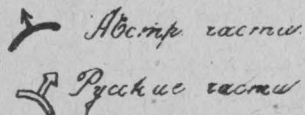 Австр части
Русские части